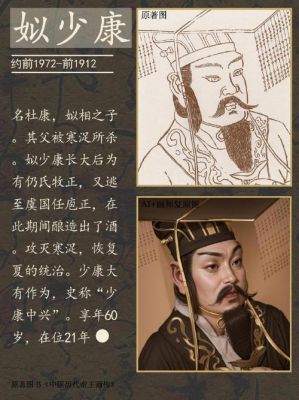 姒少康
约前1972-前1912
名杜康，姒相之子
。其父被寒浞所杀
。姒少康长大后为
有仍氏牧正，又逃
至虞国任庖正，在
此期间酿造出了酒
。攻灭寒浞，恢复
夏的统治。少康大
有作为，史称“少
康中兴”。享年60
岁，在位21年
原著图
AI+画师复原图
原著图书《中国历代帝王画传》